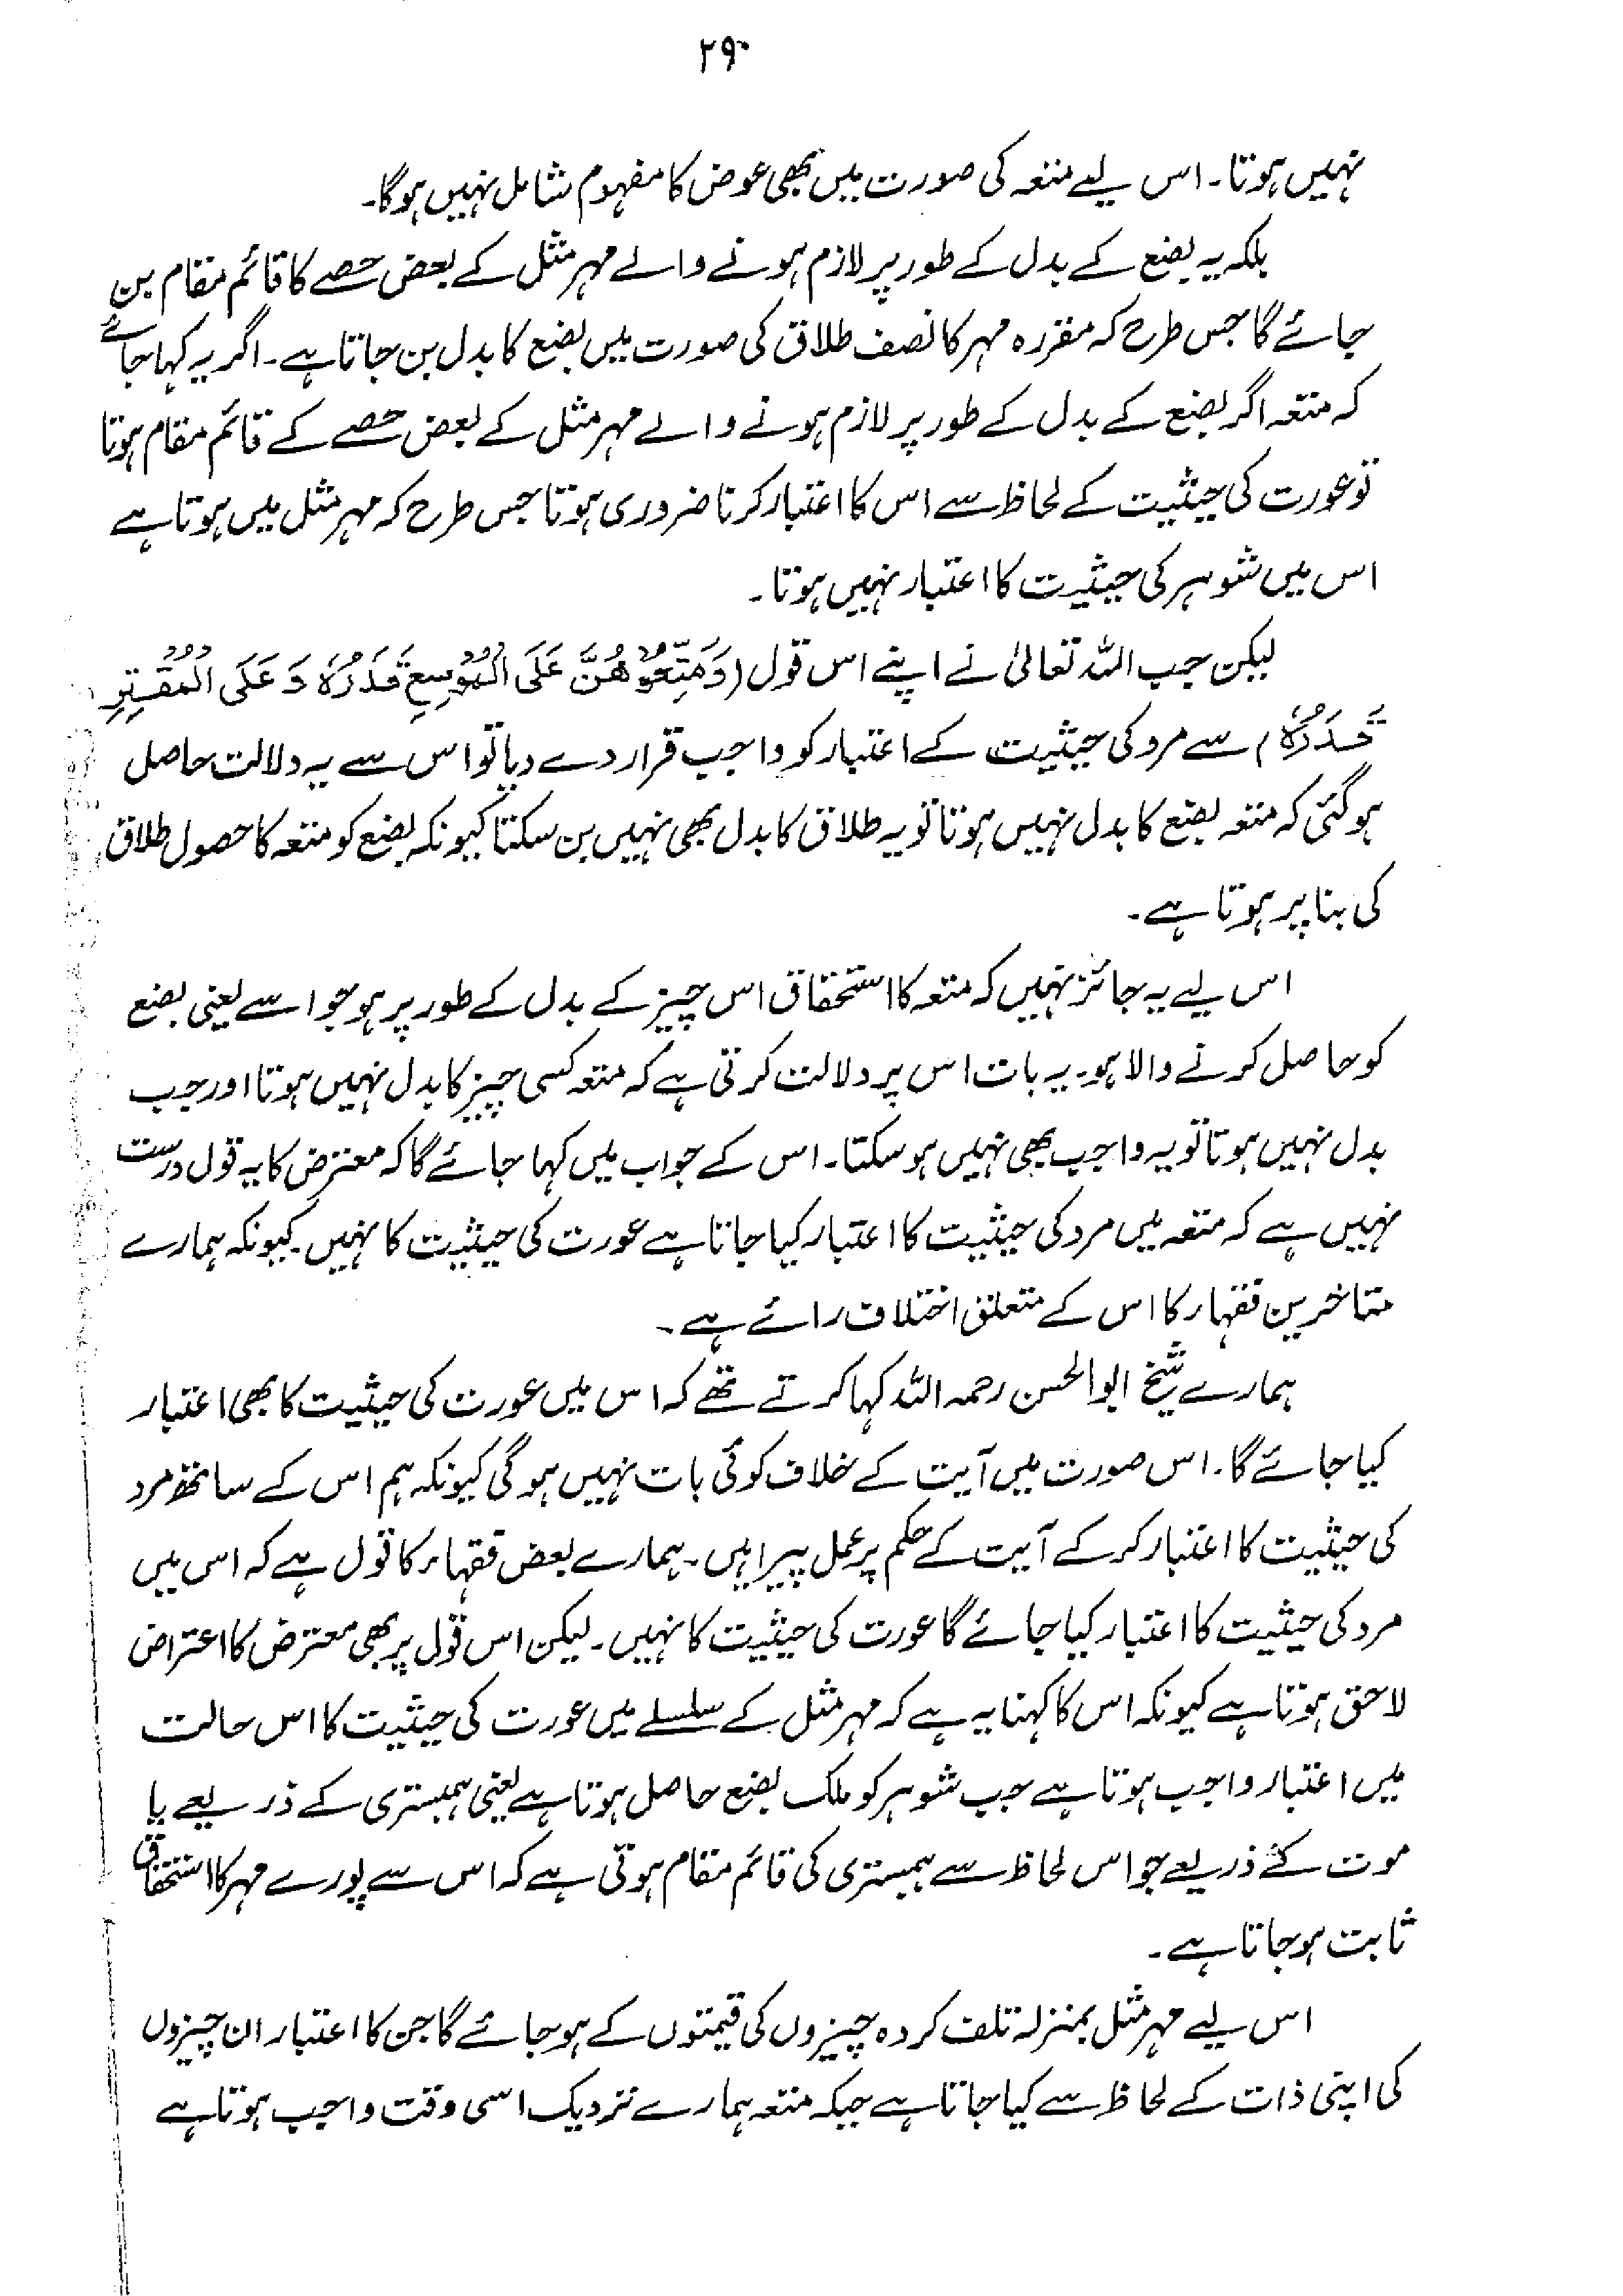 ۲۹۰
نہیں ہوتا۔ اس لیے متعہ کی صورت میں بھی عوض کا مفہوم شامل نہیں ہوگا۔
بلکہ یہ بضع کے بدل کے طور پر لازم ہونے والے مہر مثل کے بعض حصے کا قائم مقام بن
جائے گا جس طرح کہ مقررہ مہر کا نصف طلاق کی صورت میں بضع کا بدل بن جاتا ہے۔ اگر یہ کہا جائے
کہ متعہ اگر بضع کے بدل کے طور پر لازم ہونے والے مہر مثل کے بعض حصے کے قائم مقام ہوتا
تو عورت کی حیثیت کے لحاظ سے اس کا اعتبار کرنا ضروری ہوتا جس طرح کہ مہر مثل میں ہوتا ہے
اس میں شوہر کی حیثیت کا اعتبار نہیں ہوتا۔
لیکن جب اللہ تعالیٰ نے اپنے اس قول (وَمَتِّعُوْهُنَّ عَلَى الْمُوْسِعِ قَدَرُهٗ وَعَلَى الْمُقْتِرِ
قَدَرُهٗ) سے مرد کی حیثیت کے اعتبار کو واجب قرار دے دیا تو اس سے یہ دلالت حاصل
ہو گئی کہ متعہ بضع کا بدل نہیں ہوتا تو یہ طلاق کا بدل بھی نہیں بن سکتا کیونکہ بضع کو متعہ کا حصول طلاق
کی بنا پر ہوتا ہے۔
اس لیے یہ جائز نہیں کہ متعہ کا استحقاق اس چیز کے بدل کے طور پر ہو جو اسے یعنی بضع
کو حاصل کرنے والا ہو۔ یہ بات اس پر دلالت کرتی ہے کہ متعہ کسی چیز کا بدل نہیں ہوتا اور جب
بدل نہیں ہوتا تو یہ واجب بھی نہیں ہو سکتا۔ اس کے جواب میں کہا جائے گا کہ معترض کا یہ قول درست
نہیں ہے کہ متعہ میں مرد کی حیثیت کا اعتبار کیا جاتا ہے عورت کی حیثیت کا نہیں۔ کیونکہ ہمارے
متاخرین فقہاء کا اس کے متعلق اختلاف رائے ہے۔
ہمارے شیخ ابوالحسن رحمہ اللہ کہا کرتے تھے کہ اس میں عورت کی حیثیت کا بھی اعتبار
کیا جائے گا۔ اس صورت میں آیت کے خلاف کوئی بات نہیں ہو گی کیونکہ ہم اس کے ساتھ مرد
کی حیثیت کا اعتبار کر کے آیت کے حکم پر عمل پیرا ہیں۔ ہمارے بعض فقہاء کا قول ہے کہ اس میں
مرد کی حیثیت کا اعتبار کیا جائے گا عورت کی حیثیت کا نہیں۔ لیکن اس قول پر بھی معترض کا اعتراض
لاحق ہوتا ہے کیونکہ اس کا کہنا یہ ہے کہ مہر مثل کے سلسلے میں عورت کی حیثیت کا اس حالت
میں اعتبار واجب ہوتا ہے جب شوہر کو ملک بضع حاصل ہوتا ہے یعنی ہمبستری کے ذریعے یا
موت کے ذریعے جو اس لحاظ سے ہمبستری کی قائم مقام ہوتی ہے کہ اس سے پورے مہر کا استحقاق
ثابت ہو جاتا ہے۔
اس لیے مہر مثل بمنزلہ تلف کردہ چیزوں کی قیمتوں کے ہو جائے گا جن کا اعتبار ان چیزوں
کی اپنی ذات کے لحاظ سے کیا جاتا ہے جبکہ متعہ ہمارے نزدیک اسی وقت واجب ہوتا ہے